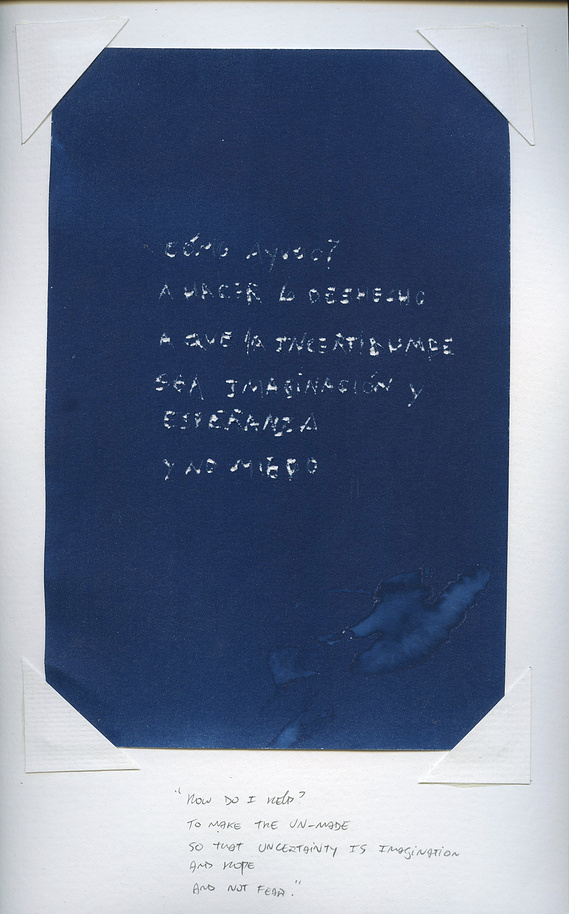 CÓMO AYUDO?
A HACER lo DESHECHO
A QUE la INCERTIDUMBRE
SEA IMAGINACIÓN y
ESPERANZA
Y NO MIEDO
"HOW DO I HELP?
TO MAKE THE UN-MADE
SO THAT UNCERTAINTY IS IMAGINATION
AND HOPE
AND NOT FEAR."